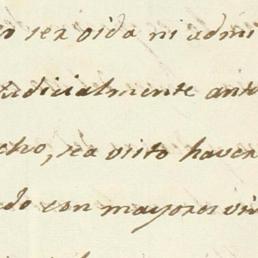 ser oida ni admi
judicialmente ante
cho, sea visto haver
do con mayores vin